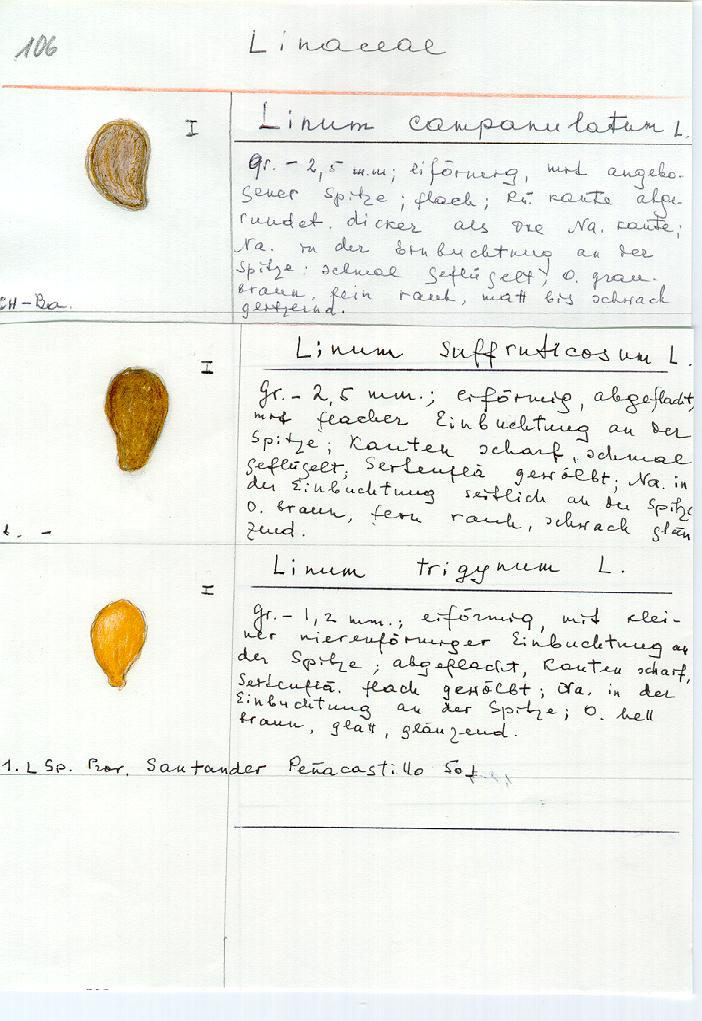 106 Linaceae
I Linum campanulatum L.
gr. - 2,5 m.m; eiförmig, mit angebo-
gener Spitze; flach; Rü kante abge-
rundet. dicker als die Na. kante;
Na. in der Einbuchtung an der
Spitze: schmal geflügelt; O. grau-
braun, fein rauh, matt bis schwach
glänzend.
CH-Ba.
I Linum suffruticosum L.
gr. - 2,5 mm.; eiförmig, abgeflacht,
mit flacher Einbuchtung an der
Spitze; Kanten scharf, schmal
geflügelt; Seitenflä gewölbt; Na. in
der Einbuchtung seitlich an der Spitze
O. braun, fein rauh, schwach glän
zend.
I Linum trigynum L.
gr. - 1,2 mm.; eiförmig, mit klei-
ner nierenförmiger Einbuchtung an
der Spitze; abgeflacht, Kanten scharf,
Seitenflä. flach gewölbt; Na. in der
Einbuchtung an der Spitze; O. hell
braun, glatt, glänzend.
1. L Sp. Bor. Santander Peñacastillo